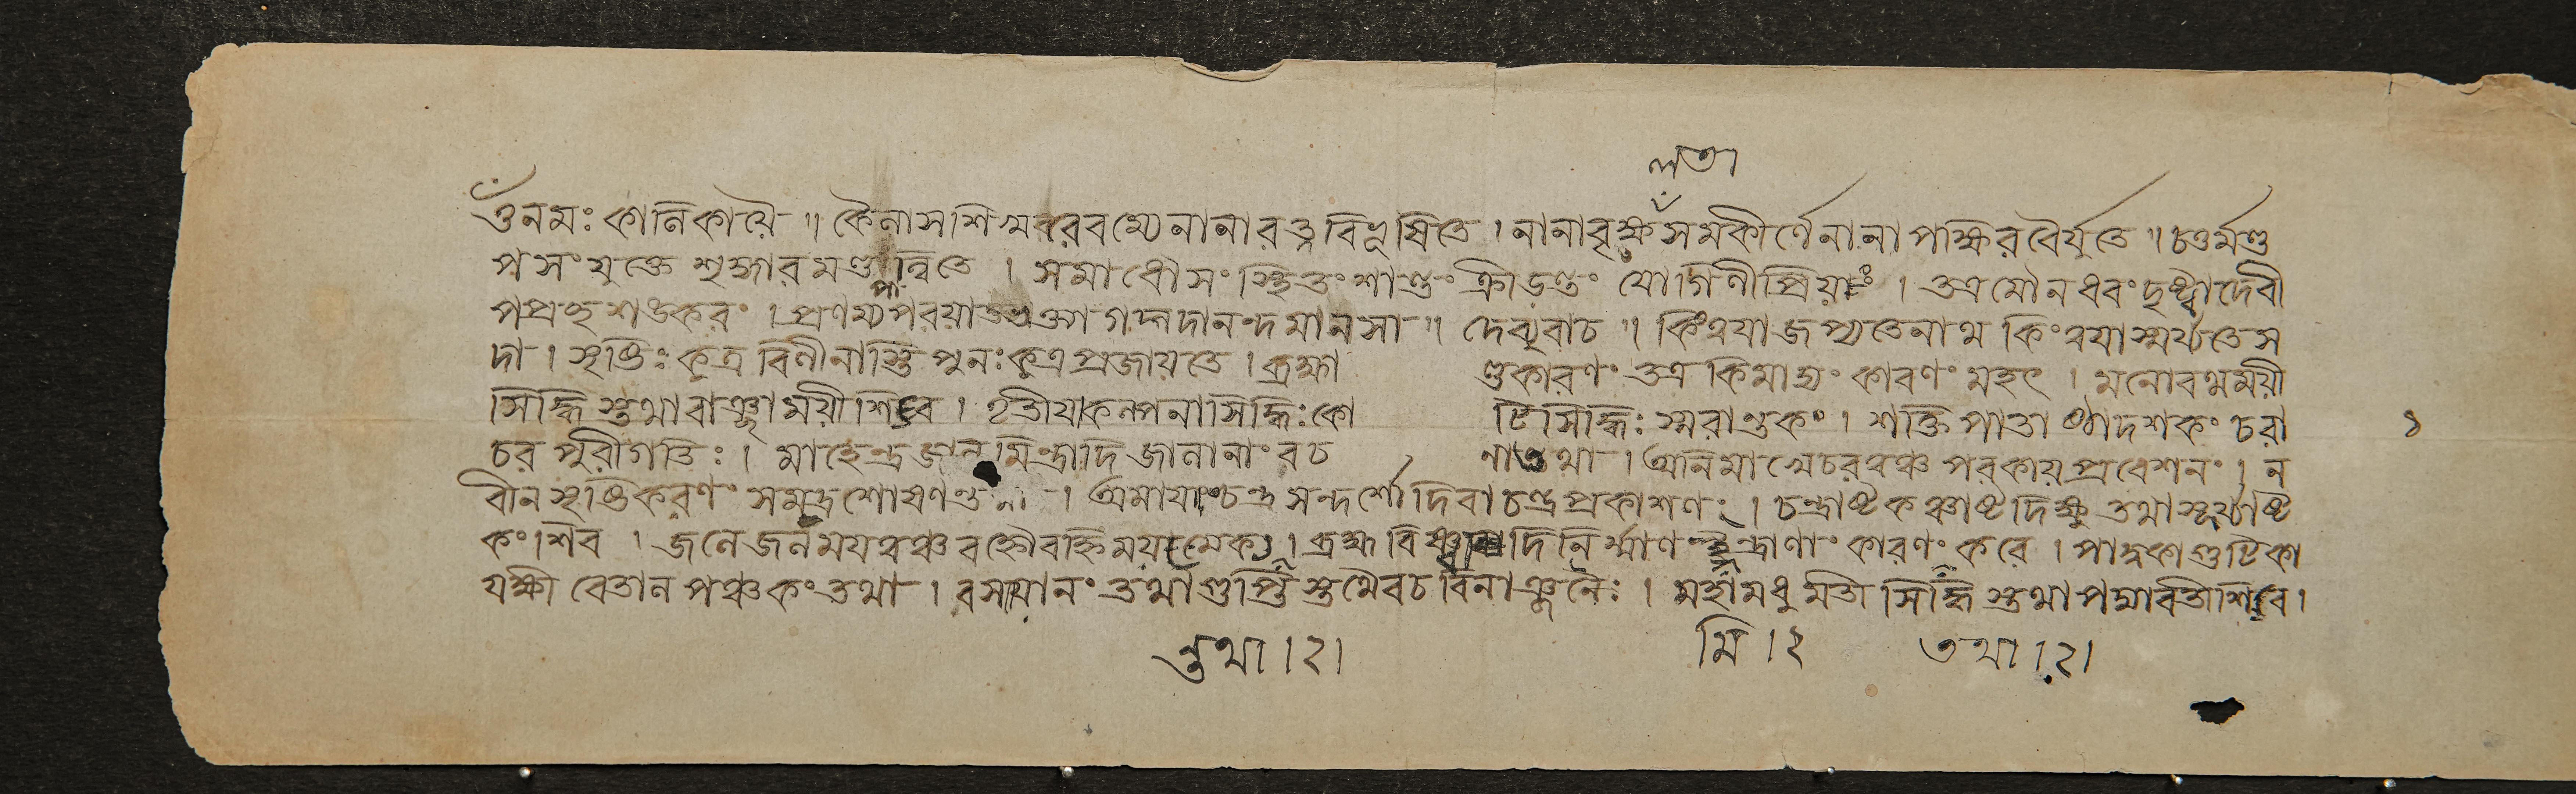 লতা
ওঁ নমঃ কালিকায়ৈ ॥ কৈলাসশিখরেরম্যে নানারত্নবিভূষিতে । নানাবৃক্ষসমকীর্ণে নানাপক্ষিরবৈর্যুতে ॥ চতুর্মণ্ড
পসংযুক্তে শৃঙ্গারমণ্ডপান্বিতে । সমাধৌসংস্থিতং শান্তং ক্রীড়ন্তং যোগিনীপ্রিয়ং । তত্রমৌনধরং দৃষ্ট্বাদেবী
পপ্রচ্ছ শঙ্করং । প্রণম্যপরয়াভক্ত্যা গদ্গদানন্দমানসা ॥ দেব্যুবাচ ॥ কিংত্বয়াজপ্যতেনাথ কিংত্বয়াস্মর্য্যতেস
দা । সৃষ্টিঃ কুত্রবিলীনাস্তি পুনঃকুত্রপ্রজায়তে । ব্রহ্মা ণ্ডকারণং তত্র কিমাদ্যং কারণং মহৎ । মনোরথময়ী
সিদ্ধি স্তথাবাঞ্ছাময়ীশিবে । তৃতীয়াকল্পনাসিদ্ধিঃকো টিসিদ্ধিঃ স্মরান্তকং । শক্তিপাতাষ্টাদশকং চরা
চরপুরীগতিঃ । মাহেন্দ্রজালমিন্দ্রাদিজালানাং রচ নাতথা । অনিমাখেচরত্বঞ্চ পরকায়প্রবেশনং । ন
বীনসৃষ্টিকরণং সমুদ্রশোষণন্ত । অমায়াংচন্দ্রসন্দর্শো দিবাচন্দ্রপ্রকাশণং । চন্দ্রাষ্টকঞ্চাষ্টদিক্ষু তথাসূর্য্যাষ্ট
কংশিব । জলেজলময়ত্বঞ্চ বহ্নৌবহ্নিময় মেকং । ব্রহ্মবিষ্ণ্বাদিনির্ম্মাণ মিন্দ্রাণাং কারণংকরে । পাদুকাগুটিকা
যক্ষীবেতাল পঞ্চকংতথা । রসায়নং তথাগুপ্তি স্তথৈবচবিনাঞ্জনৈঃ । মহামধুমতীসিদ্ধি স্তথাপদ্মাবতীশিবে ।
১
ন্তথা । ২ । মি । ২ তথা । ২ ।